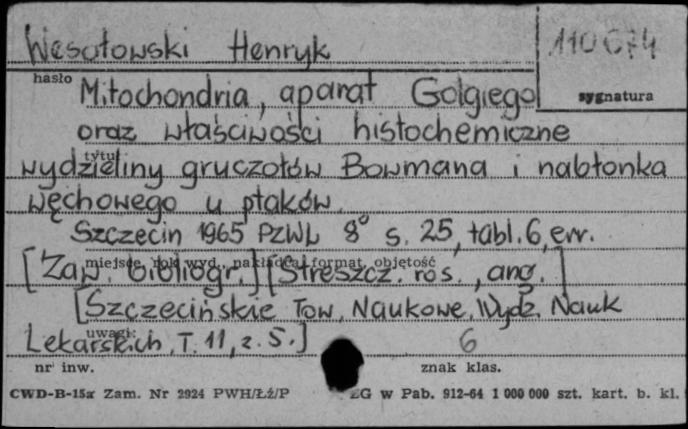 Wesołowski Henryk
110674
hasło
sygnatura
Mitochondria, aparat Golgiego
oraz właściwości histochemiczne
tytuł
wydzieliny gruczołów Bowmana i nabłonka
węchowego u ptaków.
Szczecin 1965 PZWL 8° s. 25, tabl. 6, err.
miejsce, rok wyd., nakładca, format, objętość
[Zaw. bibliogr.] [Streszcz. ros., ang.]
[Szczecińskie Tow. Naukowe. Wydz. Nauk
uwagi:
Lekarskich, T. 11, z. 5.]
6
nr inw.
znak klas.
CWD-B-15a Zam. Nr 2924 PWH/Łź/P
ZG w Pab. 912-64 1 000 000 szt. kart. b. kl.